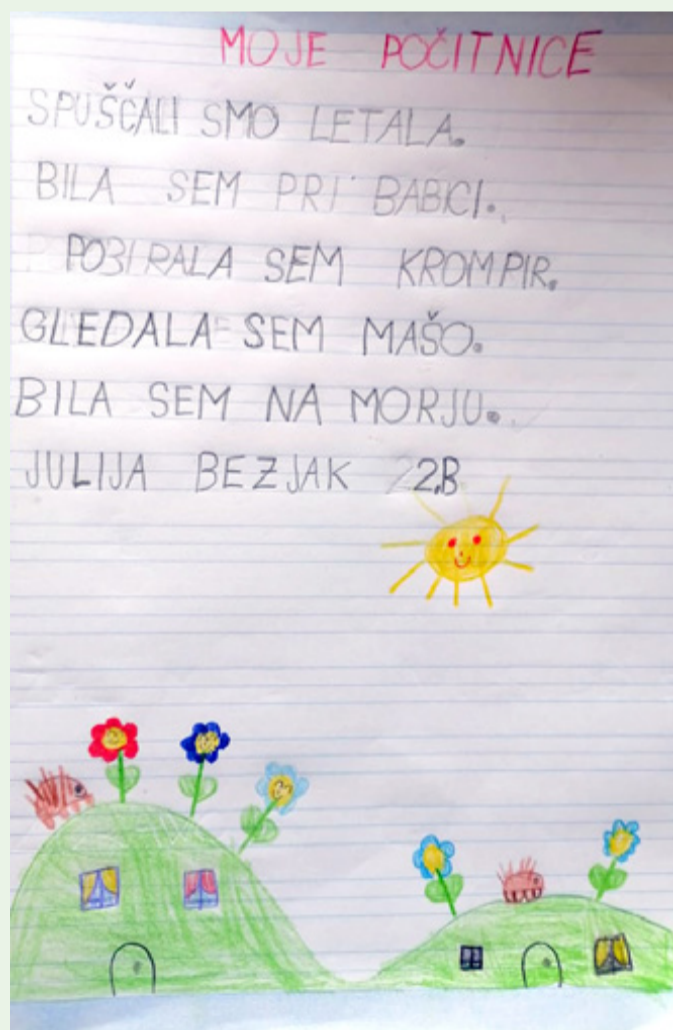 MOJE POČITNICE
SPUŠČALI SMO LETALA.
BILA SEM PRI BABICI.
POBIRALA SEM KROMPIR.
GLEDALA SEM MAŠO.
BILA SEM NA MORJU.
JULIJA BEZJAK 2.B